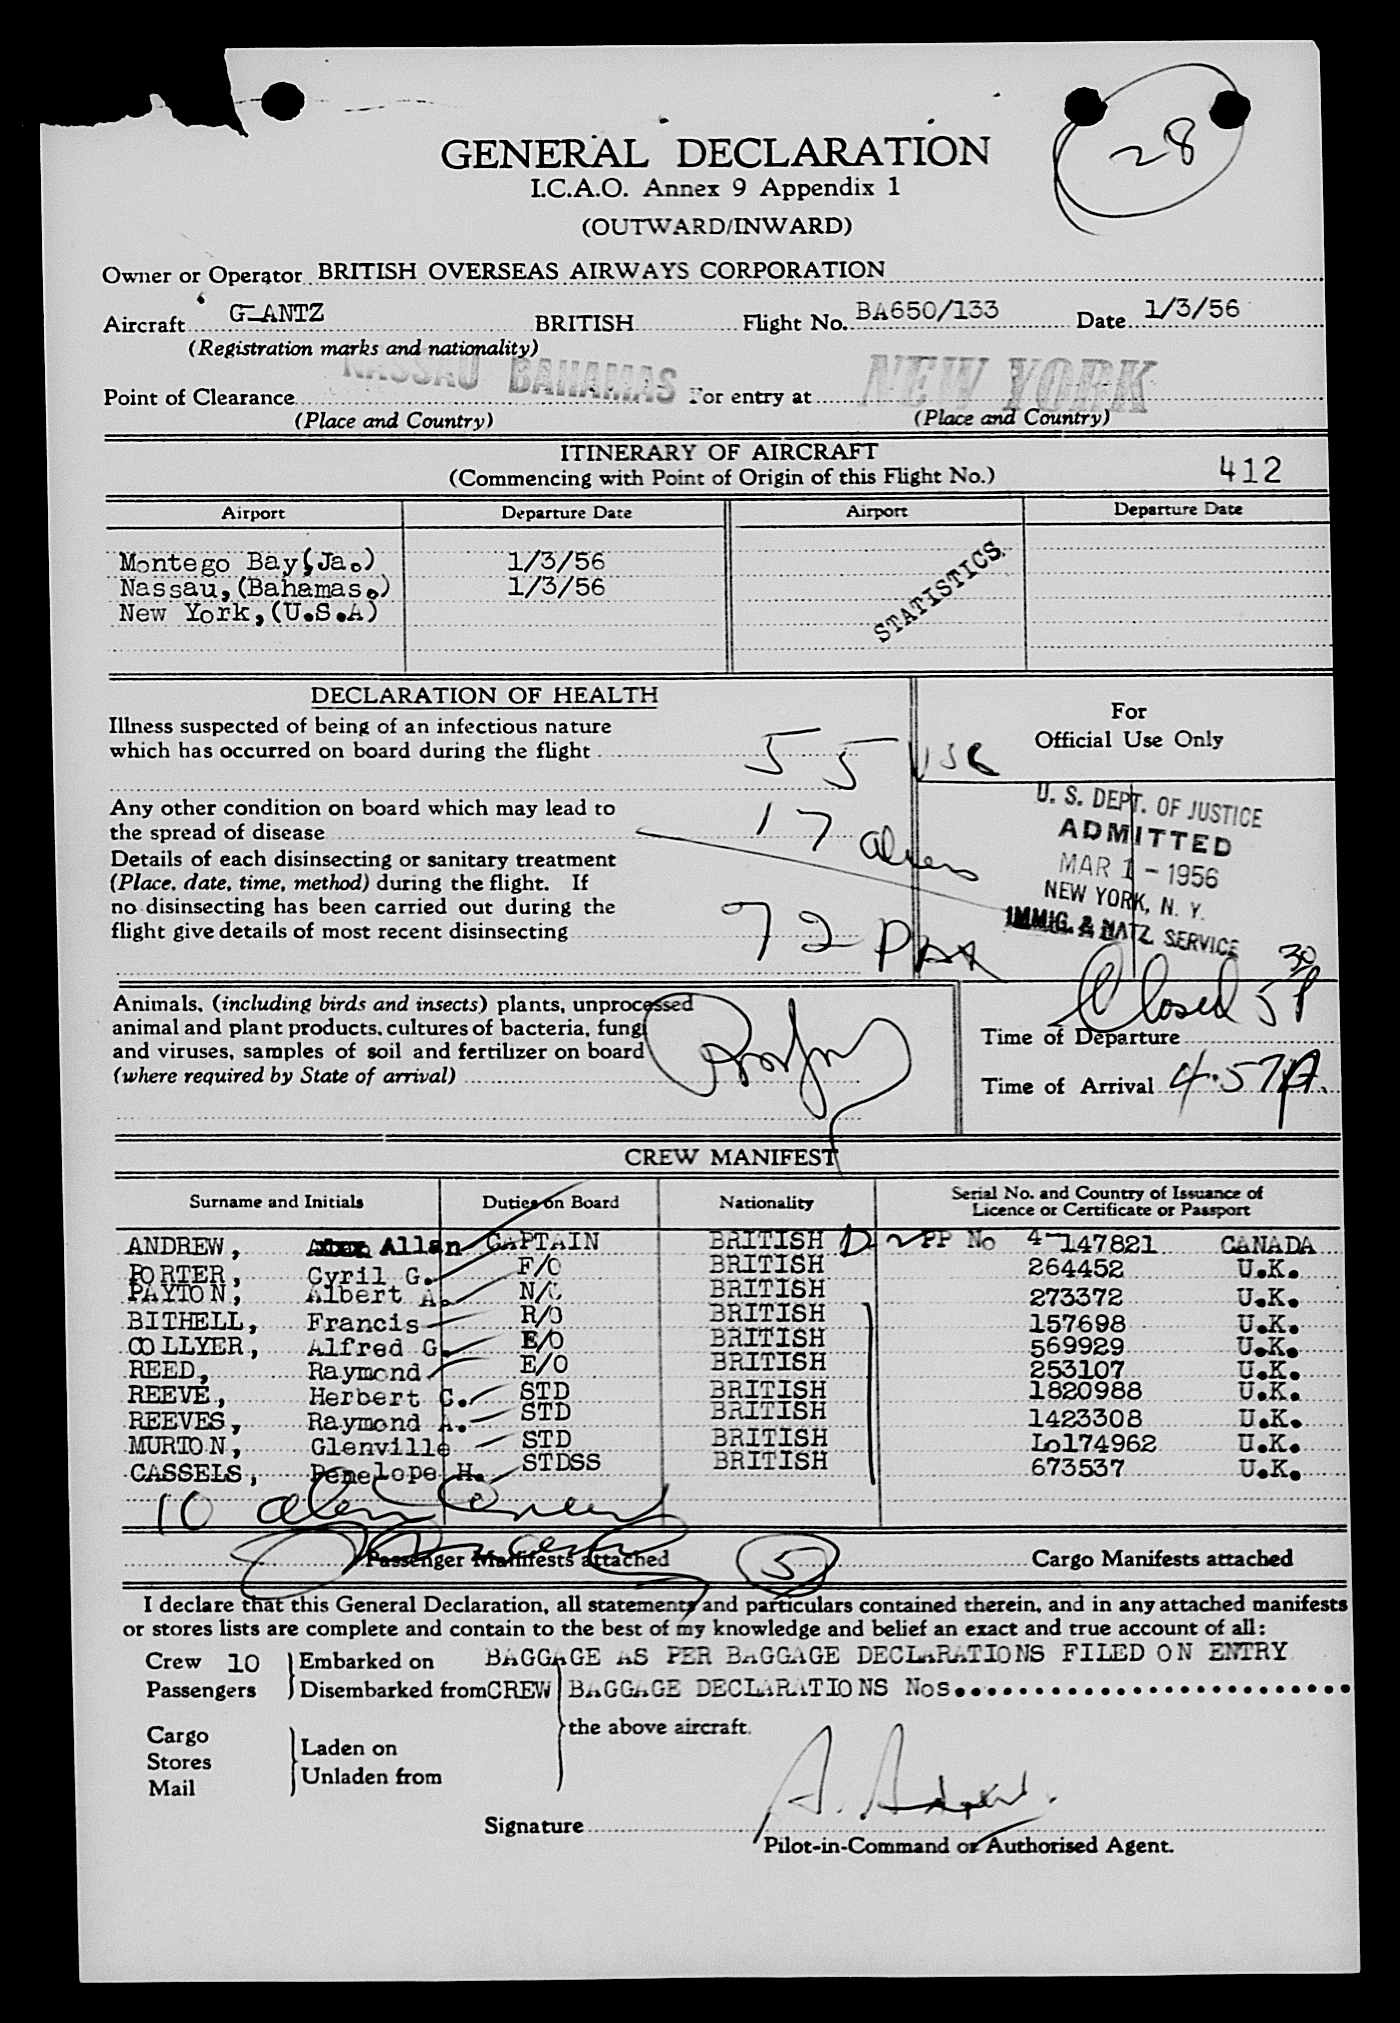 28
GENERAL DECLARATION
I.C.A.O. Annex 9 Appendix 1
(OUTWARD/INWARD)
Owner or Operator BRITISH OVERSEAS AIRWAYS CORPORATION
Aircraft G-ANTZ BRITISH Flight No. BA650/133 Date 1/3/56
(Registration marks and nationality)
Point of Clearance NASSAU BAHAMAS For entry at NEW YORK
(Place and Country) (Place and Country)
ITINERARY OF AIRCRAFT
(Commencing with Point of Origin of this Flight No.) 412
Airport Departure Date Airport Departure Date
Montego Bay,(Ja.) 1/3/56
Nassau,(Bahamas.) 1/3/56
New York,(U.S.A)
STATISTICS.
DECLARATION OF HEALTH
For
Official Use Only
Illness suspected of being of an infectious nature
which has occurred on board during the flight 55 USC
Any other condition on board which may lead to
the spread of disease 17 aliens
Details of each disinsecting or sanitary treatment
(Place, date, time, method) during the flight. If
no disinsecting has been carried out during the
flight give details of most recent disinsecting 72 pax
U. S. DEPT. OF JUSTICE
ADMITTED
MAR 1 - 1956
NEW YORK, N. Y.
IMMIG. & NATZ. SERVICE
Animals, (including birds and insects) plants, unprocessed
animal and plant products, cultures of bacteria, fungi
and viruses, samples of soil and fertilizer on board
(where required by State of arrival)
Closed 5 30 P
Time of Departure
Time of Arrival 4.57P.
CREW MANIFEST
Surname and Initials Duties on Board Nationality Serial No. and Country of Issuance of
Licence or Certificate or Passport
ANDREW, Allan CAPTAIN BRITISH PP No 4-147821 CANADA
PORTER, Cyril G. F/O BRITISH 264452 U.K.
PAYTON, Albert A. N/O BRITISH 273372 U.K.
BITHELL, Francis R/O BRITISH 157698 U.K.
COLLYER, Alfred G. E/O BRITISH 569929 U.K.
REED, Raymond E/O BRITISH 253107 U.K.
REEVE, Herbert C. STD BRITISH 1820988 U.K.
REEVES, Raymond A. STD BRITISH 1423308 U.K.
MURTON, Glenville STD BRITISH Lo174962 U.K.
CASSELS, Penelope H. STDSS BRITISH 673537 U.K.
10 alien crew
Passenger Manifests attached 5 Cargo Manifests attached
I declare that this General Declaration, all statements and particulars contained therein, and in any attached manifests
or stores lists are complete and contain to the best of my knowledge and belief an exact and true account of all:
Crew 10 Embarked on BAGGAGE AS PER BAGGAGE DECLARATIONS FILED ON ENTRY
Passengers Disembarked from CREW BAGGAGE DECLARATIONS Nos..........................
the above aircraft.
Cargo
Stores Laden on
Mail Unladen from
Signature A. Andrew.
Pilot-in-Command or Authorised Agent.